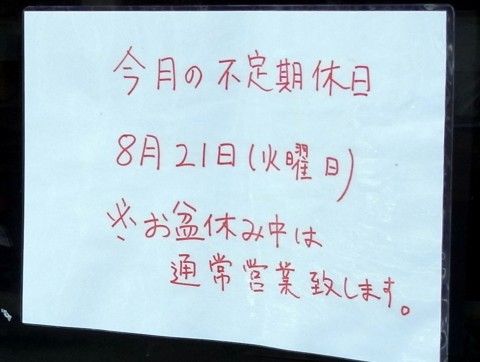 今月の不定期休日
8月21日(火曜日)
※お盆休み中は
通常営業致します。